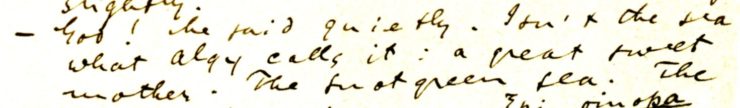 slightly.
— God! he said quietly. Isn't the sea
what Algy calls it: a great sweet
mother. The snotgreen sea. The
Epi oinopa